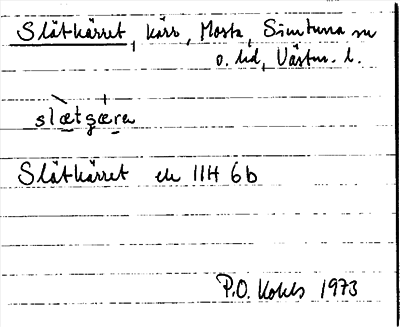 Slätkärret, kärr, Mosta, Simtuna sn
o. hd, Västm. l.
slæ̀tçæ̵ra
Slätkärret ek 11H 6b
P.O. Kohls 1973